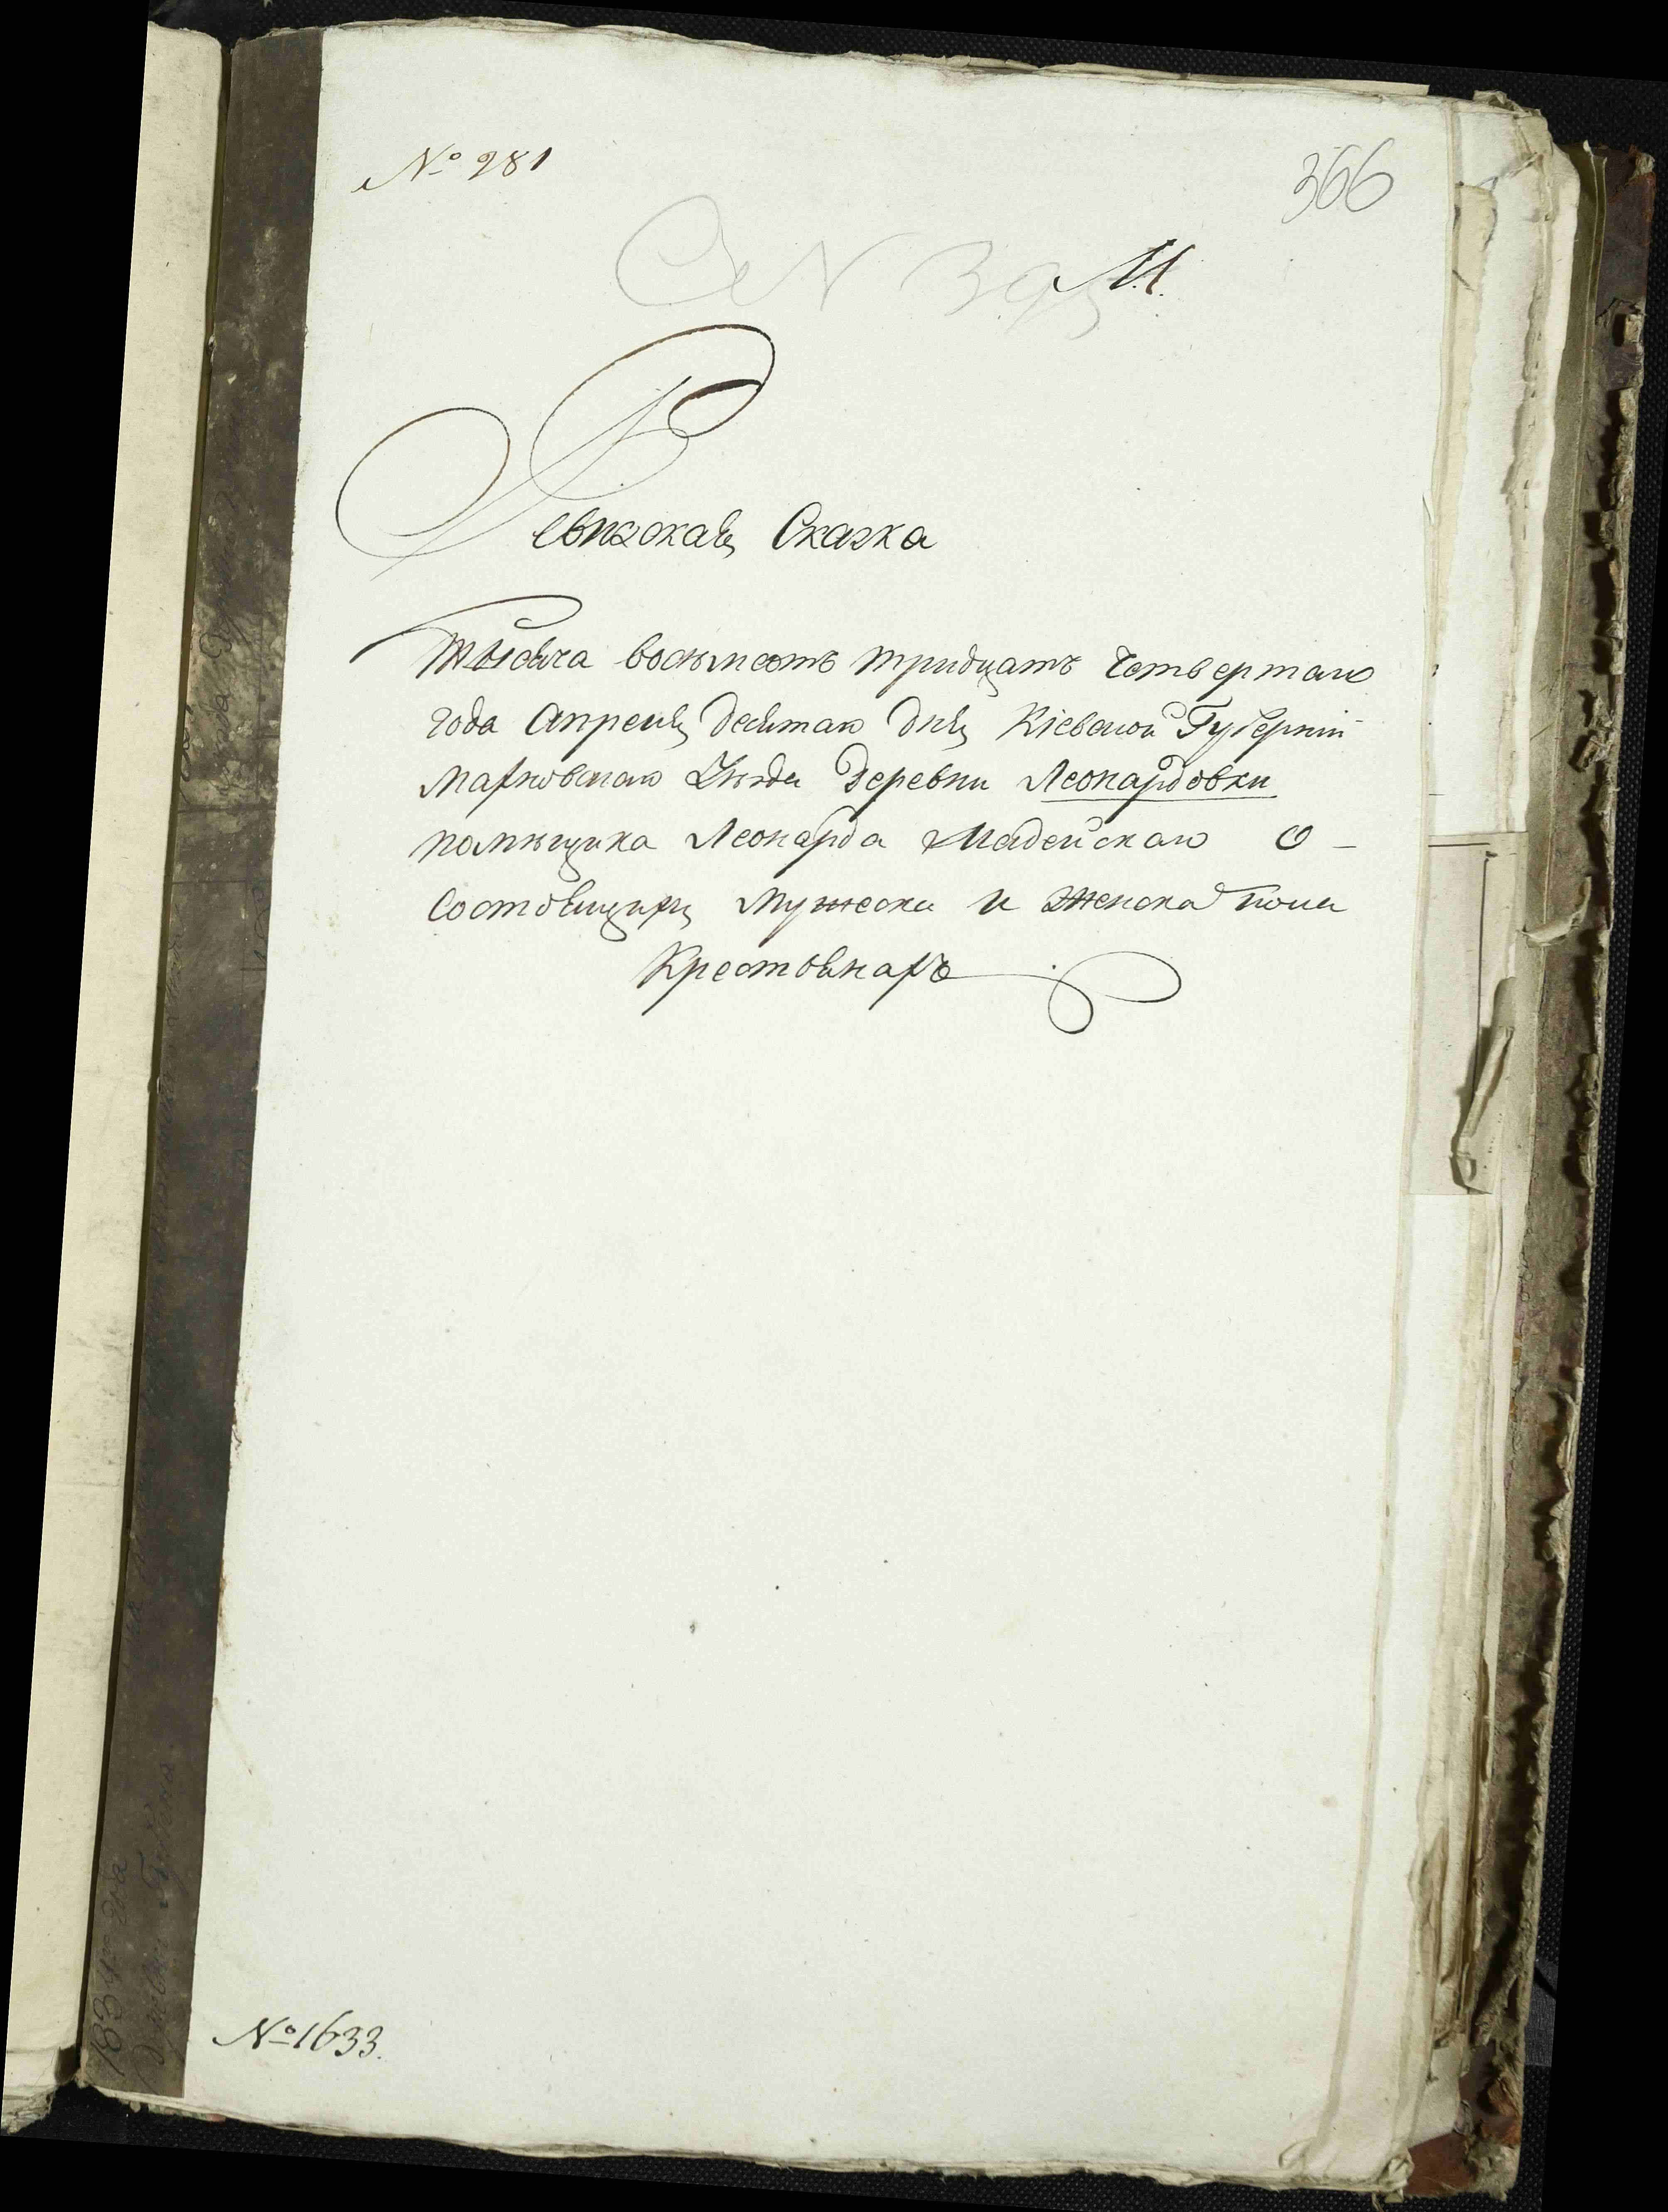 № 281
366
М.
Ревизская Сказка
Тысяча восемьсотъ тридцать Четвертаго
года Апреля десятаго дня Кіевской Губерніи
Махновскаго Уѣзда Деревни Леонардовки
помѣщика Леонарда Мадейскаго о
состоящихъ мужеска и женска пола
Крестьянахъ
№ 1633.